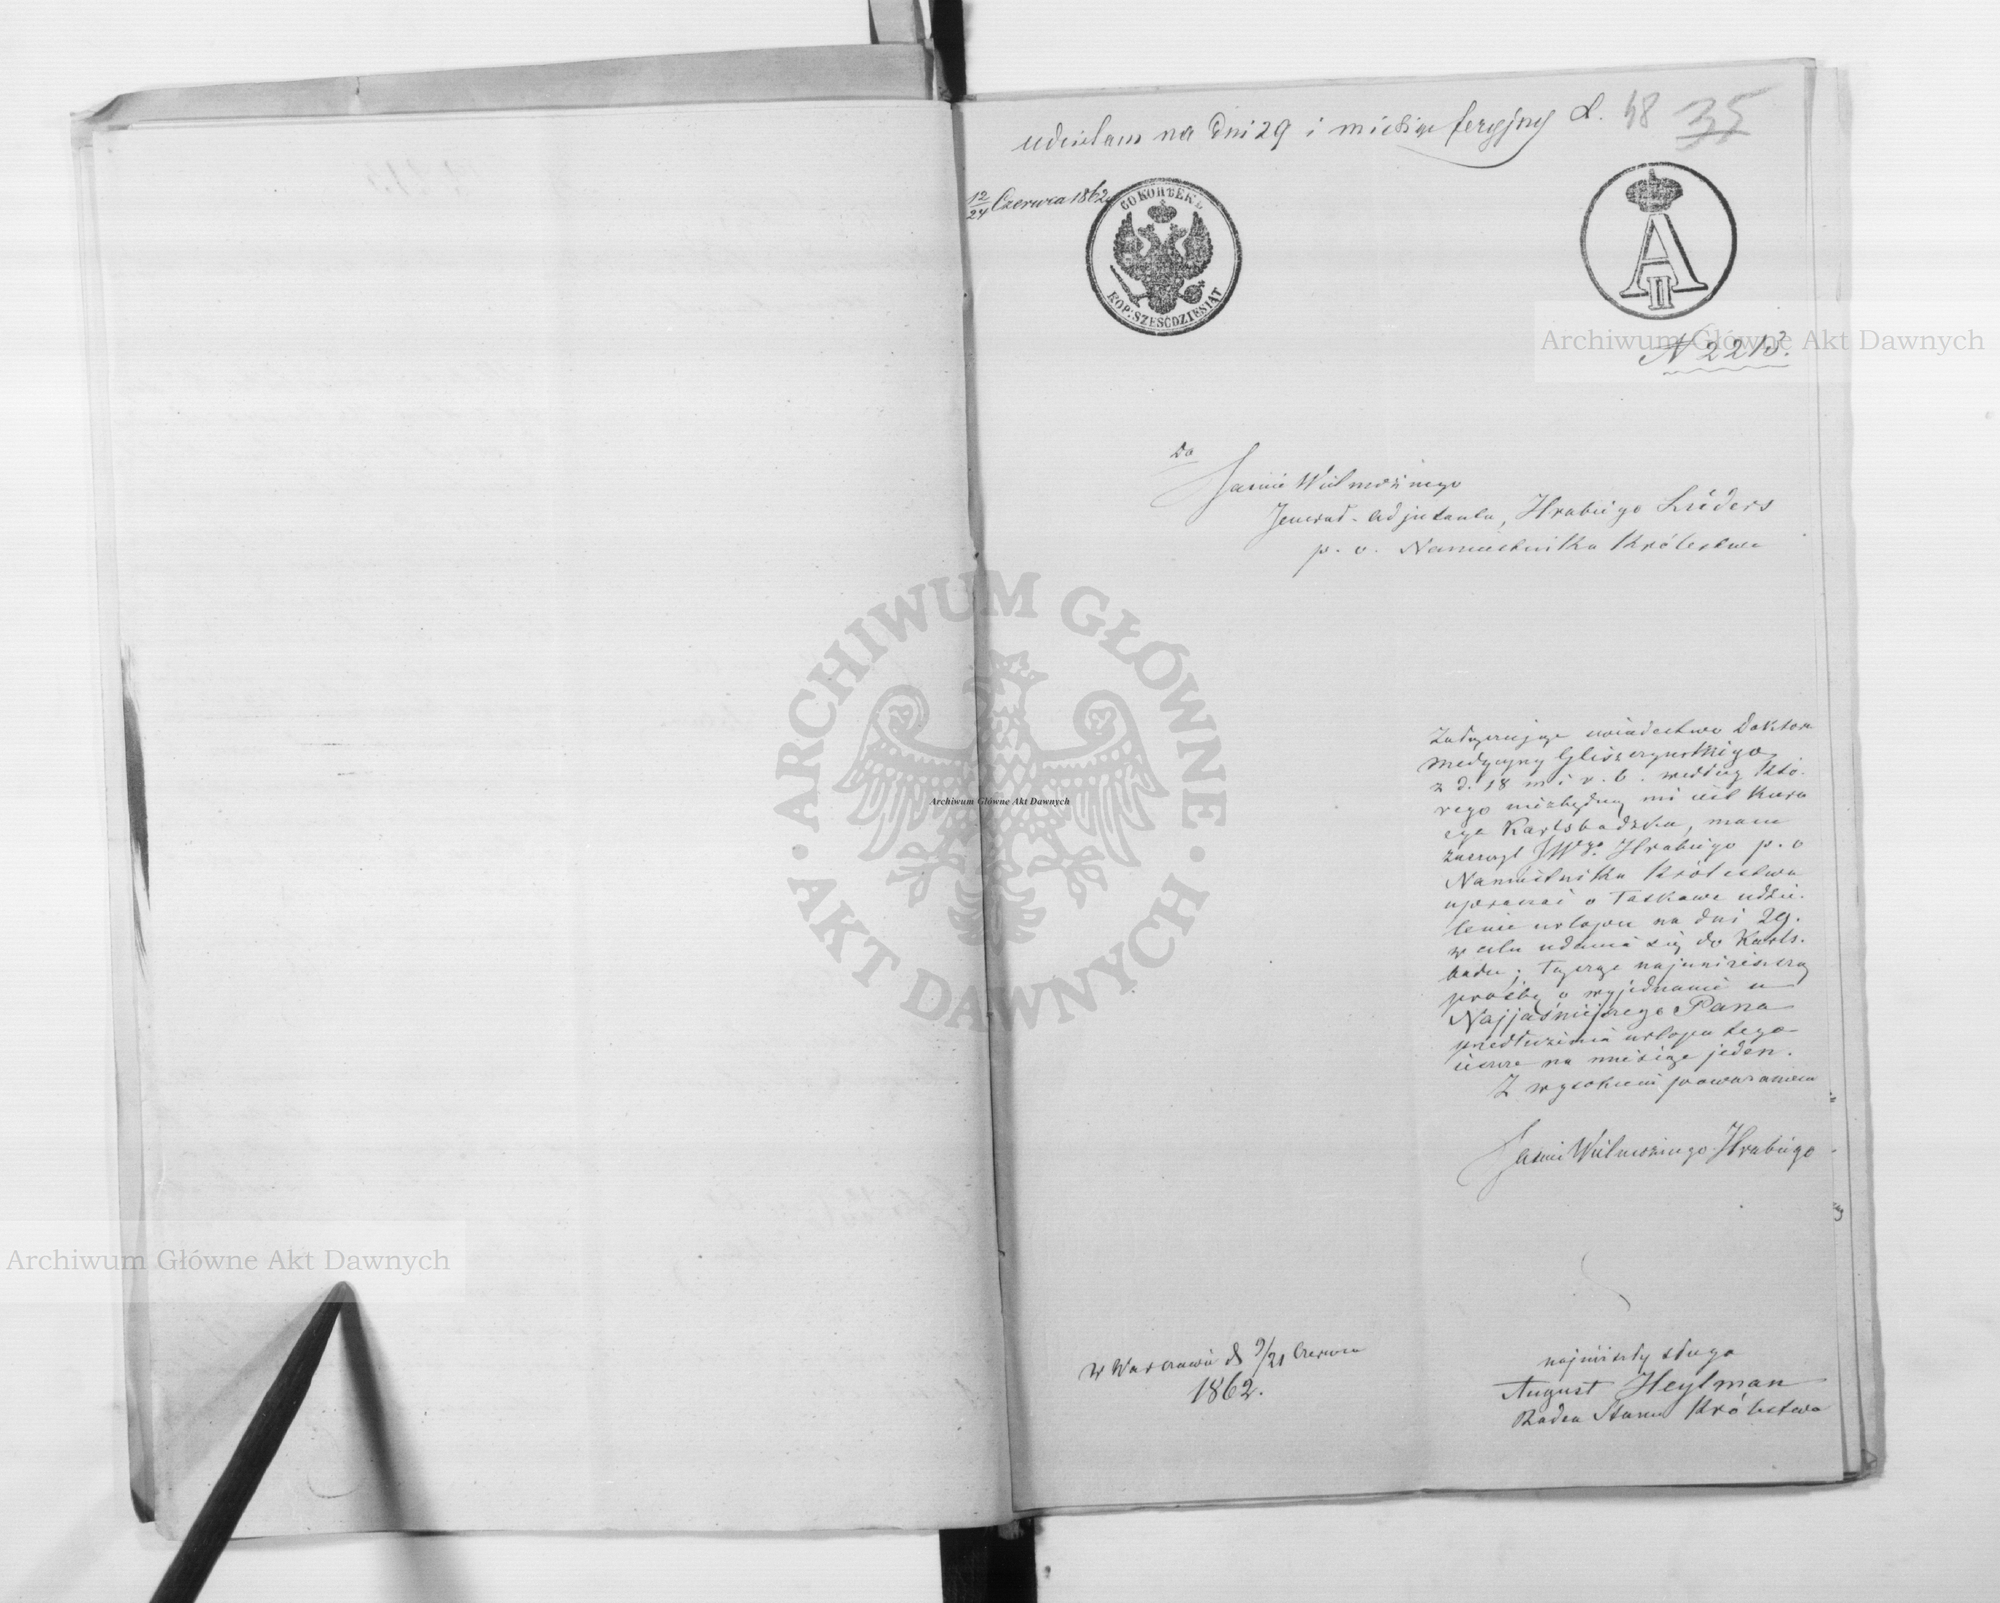 udzielam na dni 29 i miesiąc feryjny d.
48 35
12/24 Czerwca 1862
60 КОПѢЕКЪ
KOP: SZEŚĆDZIESIĄT
A II
N 2213.
Do
Jaśnie Wielmożnego
Jenerał-Adjutanta, Hrabiego Lüders
p. o. Namiestnika Królestwa
Załączając świadectwo Doktora
Medycyny
z d. 18 m i r. b. według któ-
rego niezbędną mi jest kura
cya Karlsbadzka, mam
zaszczyt JWgo. Hrabiego p. o
Namiestnika Królestwa
upraszać o łaskawe udzie-
lenie urlopu na dni 29.
w celu udania się do Karls-
badu; łącząc najuniżeńszą
prośbę o wyjednanie u
Najjaśniejszego Pana
przedłużenia urlopu tego
jeszcze na miesiąc jeden.
Z wysokiem poważaniem
Jaśnie Wielmożnego Hrabiego
najniższy sługa
August Heylman
Radca Stanu Królestwa
w Warszawie d 9/21 Czerwca
1862.
Archiwum Główne Akt Dawnych
ARCHIWUM GŁÓWNE
AKT DAWNYCH
Archiwum Główne Akt Dawnych
Archiwum Główne Akt Dawnych